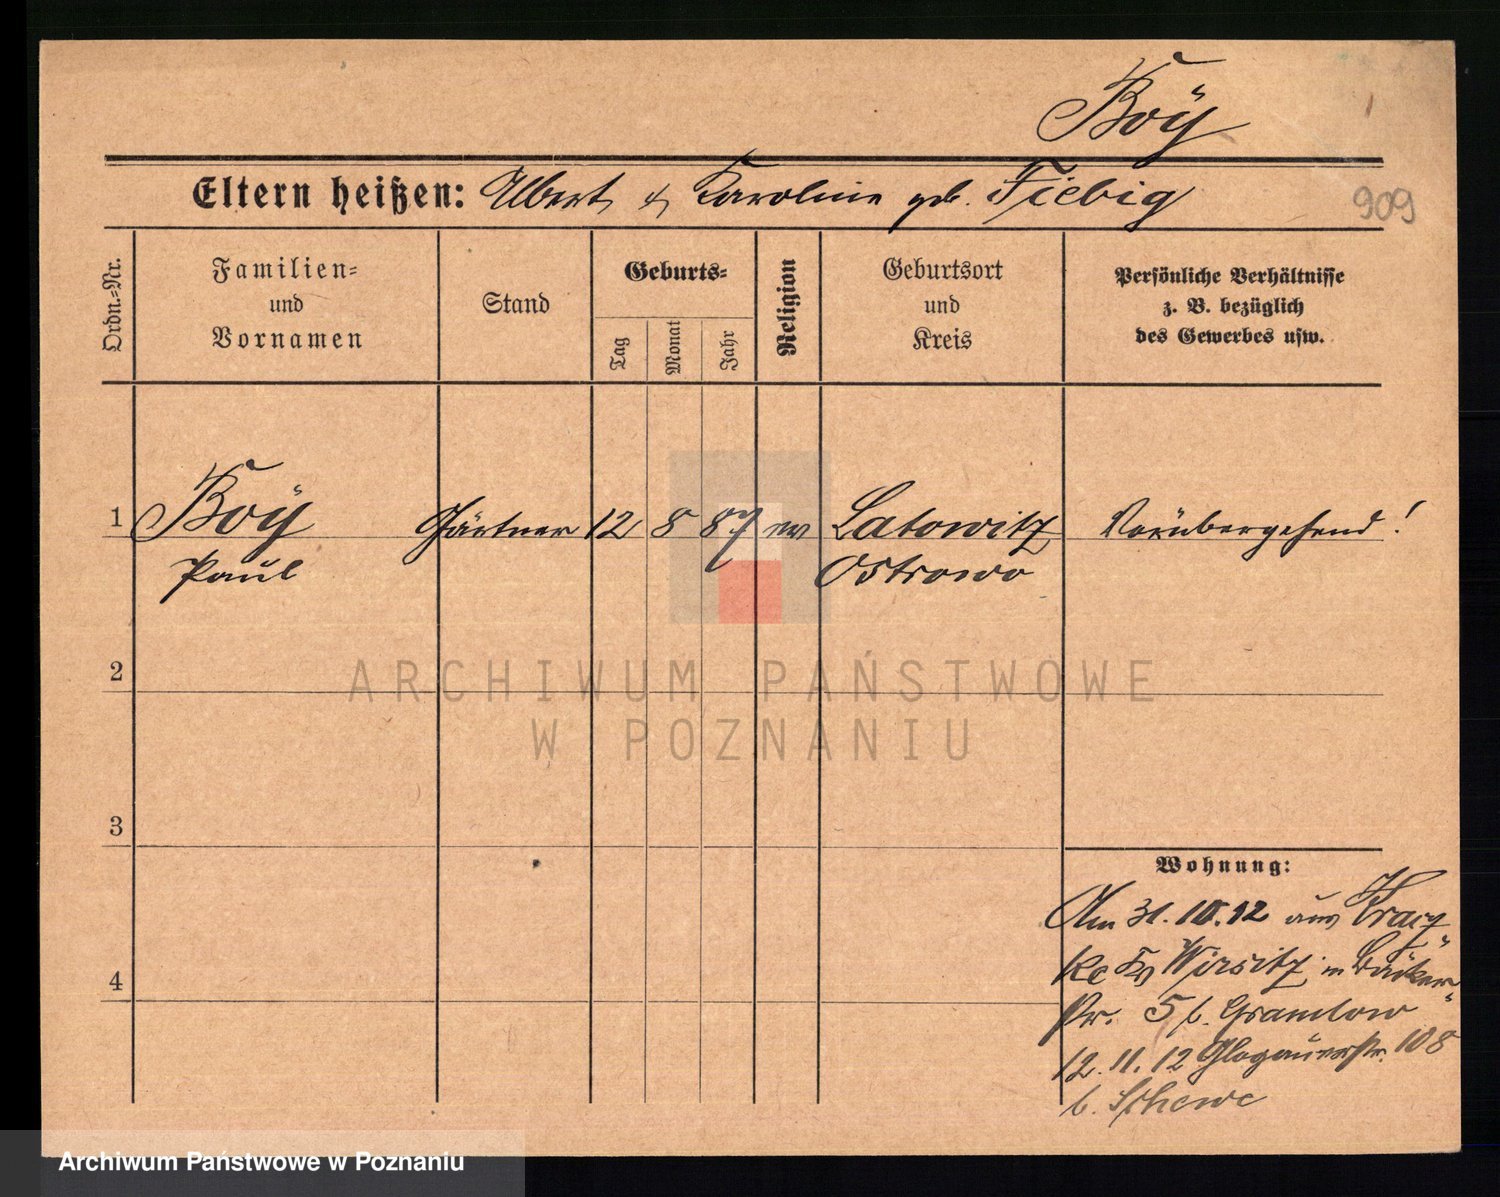 Boÿ
Eltern heißen: Albert & Karoline geb. Fiebig
909
Ordn.-Nr.
Familien-
und
Vornamen
Stand
Geburts-
Tag
Monat
Jahr
Religion
Geburtsort
und
Kreis
Persönliche Verhältnisse
z. B. bezüglich
des Gewerbes usw.
1 Boÿ Gärtner 12 8 87 ev Latowitz Vorübergehend!
Paul Ostrowo
2
3
4
Wohnung:
Am 31.10.12 aus
Wirsitz in Bäcker-
str. 5 b. Gramlow
12.11.12 Glogauerstr. 108
b. Schewe
ARCHIWUM PAŃSTWOWE
W POZNANIU
Archiwum Państwowe w Poznaniu